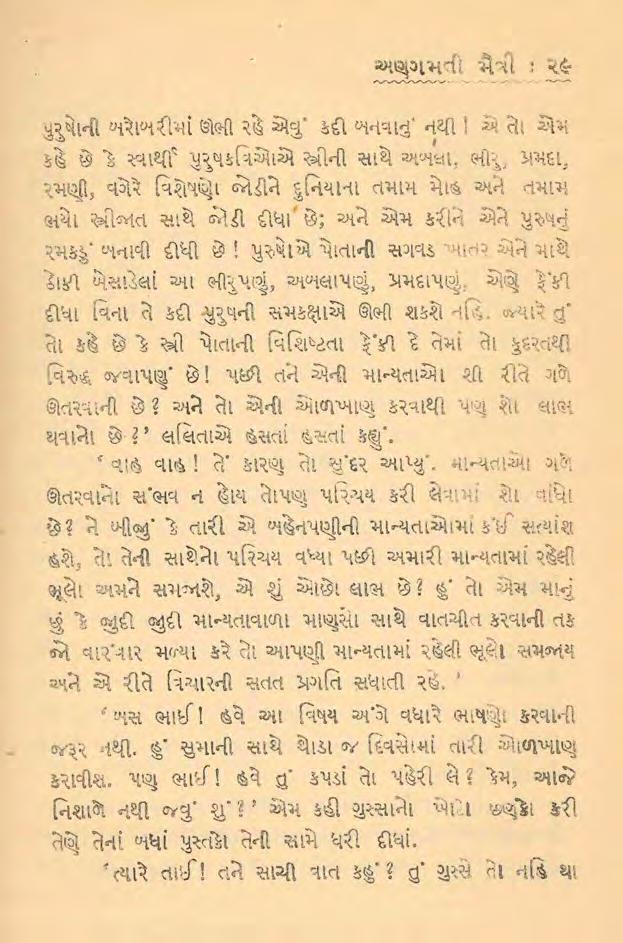 અણગમતી મૈત્રી : ૨૯
પુરુષોની બરોબરીમાં ઊભી રહે એવું કદી બનવાનું નથી ! એ તો એમ
કહે છે કે સ્વાર્થી પુરુષકવિઓએ સ્ત્રીની સાથે અબળા, ભીરુ, પ્રમદા,
રમણી, વગેરે વિશેષણો જોડીને દુનિયાના તમામ મોહ અને તમામ
ભયો સ્ત્રીજાત સાથે જોડી દીધા છે; અને એમ કરીને એને પુરુષનું
રમકડું બનાવી દીધી છે ! પુરુષોએ પોતાની સગવડ ખાતર એને માથે
ઠોકી બેસાડેલાં આ ભીરુપણું, અબલાપણું, પ્રમદાપણું, એણે ફેંકી
દીધા વિના તે કદી પુરુષની સમકક્ષાએ ઊભી શકશે નહિ. જ્યારે તું
તો કહે છે કે સ્ત્રી પોતાની વિશિષ્ટતા ફેંકી દે તેમાં તો કુદરતથી
વિરુદ્ધ જવાપણું છે! પછી તને એની માન્યતાઓ શી રીતે ગળે
ઊતરવાની છે? અને તો એની ઓળખાણ કરવાથી પણ શો લાભ
થવાનો છે ?’ લલિતાએ હસતાં હસતાં કહ્યું.
‘ વાહ વાહ! તેં કારણ તો સુંદર આપ્યું. માન્યતાઓ ગળે
ઊતરવાનો સંભવ ન હોય તોપણ પરિચય કરી લેવામાં શો વાંધો
છે? ને બીજું કે તારી એ બહેનપણીની માન્યતાઓમાં કંઈ સત્યાંશ
હશે, તો તેની સાથેનો પરિચય વધ્યા પછી અમારી માન્યતામાં રહેલી
ભૂલો અમને સમજાશે, એ શું ઓછો લાભ છે? હું તો એમ માનું
છું કે જુદી જુદી માન્યતાવાળા માણસો સાથે વાતચીત કરવાની તક
જો વારંવાર મળ્યા કરે તો આપણી માન્યતામાં રહેલી ભૂલો સમજાય
અને એ રીતે વિચારની સતત પ્રગતિ સધાતી રહે. ’
‘ બસ ભાઈ! હવે આ વિષય અંગે વધારે ભાષણો કરવાની
જરૂર નથી. હું સુમાની સાથે થોડા જ દિવસોમાં તારી ઓળખાણ
કરાવીશ. પણ ભાઈ! હવે તું કપડાં તો પહેરી લે? કેમ, આજે
નિશાળે નથી જવું શું?’ એમ કહી ગુસ્સાનો ખોટો છણકો કરી
તેણે તેનાં બધાં પુસ્તકો તેની સામે ધરી દીધાં.
‘ત્યારે તાઈ! તને સાચી વાત કહું? તું ગુસ્સે તો નહિ થા